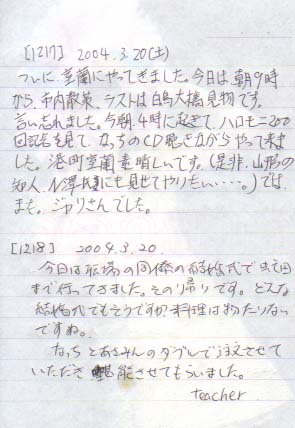 [1217] 2004.3.20(土)
ついに室蘭にやってきました。今日は朝9時
から、市内散策、ラストは白鳥大橋見物です。
言い忘れました。今朝、4時に起きて、ハロモニ200
回記念を見て、なっちのCD聴きながらやって来ま
した。港町室蘭素晴しいです。(是非、山形の
知人、N澤氏にも見せてやりたい・・・・。)では
また。ジャリさんでした。
[1218] 2004.3.20.
今日は職場の同僚の結婚式で
まで行ってきました。その帰りです。どんな
結婚式でもそうですが料理は物たりない
ですね。
なっちとあさみんのダブルで注文させて
いただき 堪能させてもらいました。
teacher